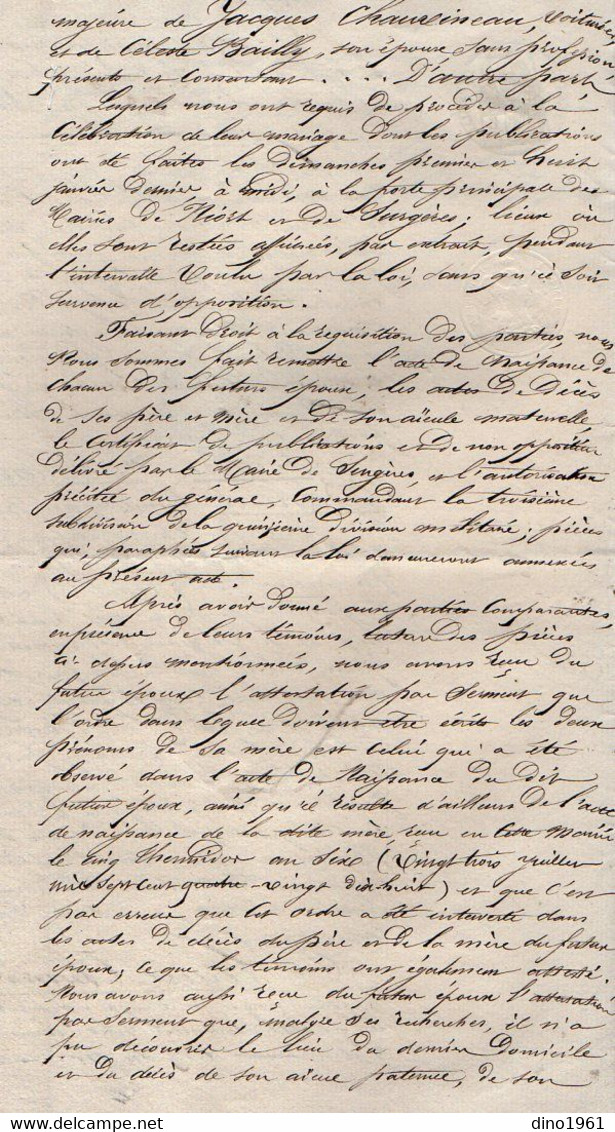 majeure de Jacques Chauvineau, voiturier
et de Céleste Bailly, son épouse sans profession
présents et consentant . . . . D'autre part,
Lesquels nous ont requis de procéder à la
Célébration de leur mariage dont les publications
ont été faites les dimanches premier et huit
janvier dernier à midi, à la porte principale des
Mairies de Niort et de Surgères; lieux où
elles sont restées affichées, par extrait, pendant
l'intervalle voulu par la loi, sans qu'il soit
survenu d'opposition.
Faisant droit à la requisition des parties, nous
Nous sommes fait remettre l'acte de Naissance de
chacun des futurs époux, les actes de Décès
de ses père et mère et de son aïeule maternelle,
le certificat de publications et de non opposition
délivré par le Maire de Surgères, et l'autorisation
précitée du général, Commandant la troisième
subdivision de la quinzième Division militaire; pièces
qui, paraphées suivant la loi demeureront annexées
au présent acte.
Après avoir donné aux parties Comparantes,
en présence de leurs témoins, lecture des pièces
ci-dessus mentionnées, nous avons reçu du
futur époux l'attestation par Serment que
l'ordre dans lequel doivent être écrits les deux
prénoms de sa mère est celui qui a été
observé dans l'acte de Naissance du dit
futur époux, ainsi qu'il résulte d'ailleurs de l'acte
de naissance de la dite mère, reçu en cette Mairie
le cinq Thermidor an Six (Vingt trois juillet
mil sept cent quatre-vingt dix huit) et que c'est
par erreur que cet ordre a été interverti dans
les actes de décès du père et de la mère du futur
époux, ce que les témoins ont également attesté.
Nous avons aussi reçu du futur époux l'attestation
par Serment que, malgré ses recherches, il n'a
pu découvrir le lieu du dernier domicile
et du décès de son aïeul paternel, de son
dino1961